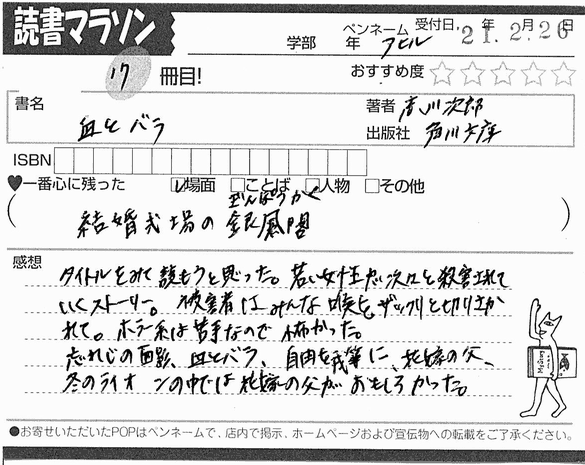 読書マラソン
学部 年 ペンネーム アヒル 受付日. 21年2月26日
17 冊目! おすすめ度 ☆☆☆☆☆
書名 血とバラ
著者 赤川次郎
出版社 角川文庫
ISBN
♥一番心に残った ☑場面 □ことば □人物 □その他
ぎんぽうかく
(結婚式場の銀鳳閣)
感想
タイトルをみて読もうと思った。若い女性が次々と殺害されて
いくストーリー。被害者はみんな喉をザックリと切りさか
れて。ホラー系は苦手なので怖かった。
忘れじの面影、血とバラ、自由を我等に、花嫁の父、
冬のライオンの中では花嫁の父がおもしろかった。
●お寄せいただいたPOPはペンネームで、店内で掲示、ホームページおよび宣伝物への転載をご了承ください。